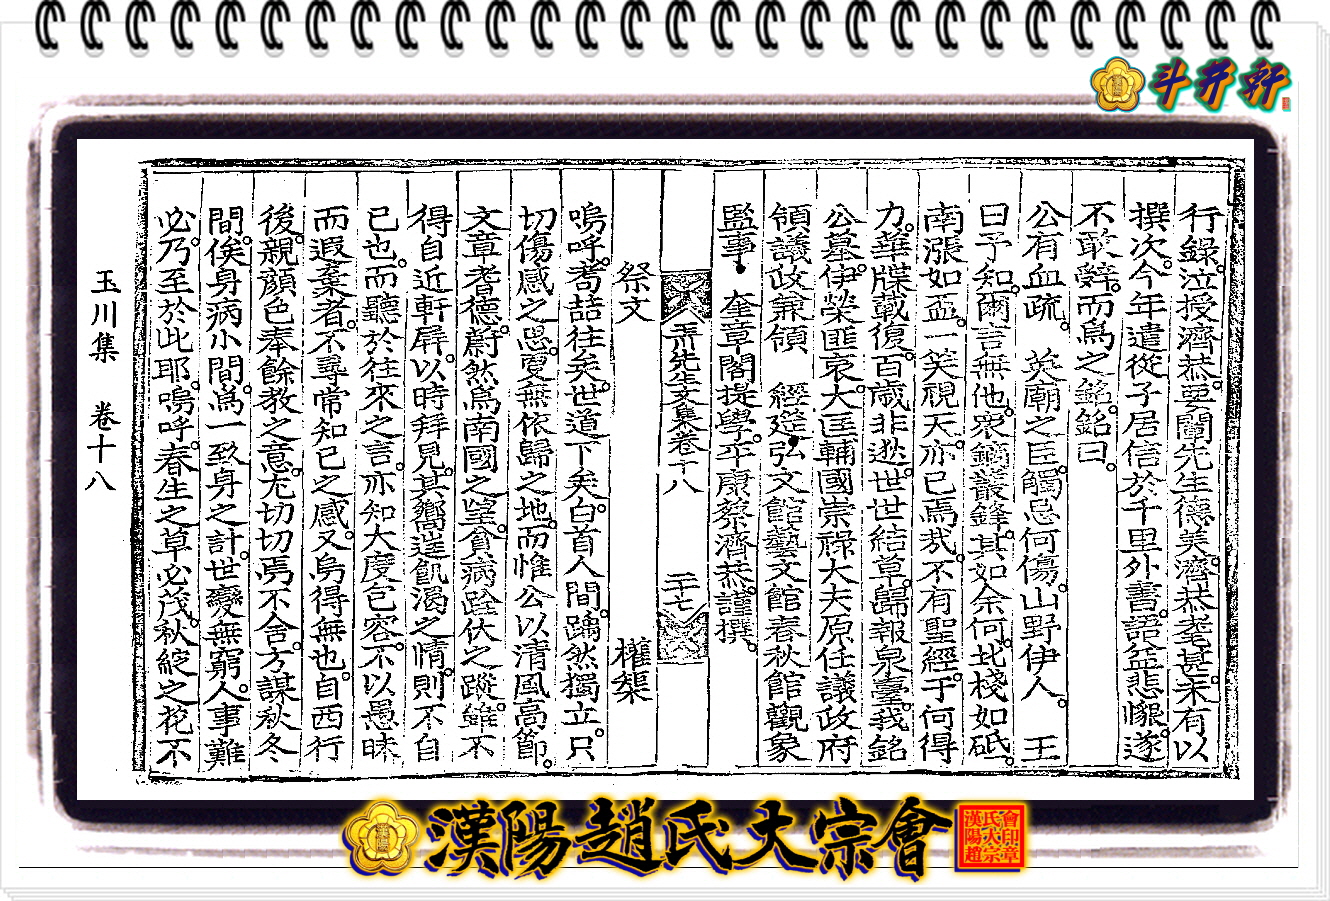 斗井軒
行錄。泣授濟恭。要闡先生德美。濟恭耄甚。未有以
撰次。今年遣從子居信於千里外書。語益悲懇。遂
不敢辭。而爲之銘。銘曰。
公有血疏。 英廟之臣。觸忌何傷。山野伊人。 王
曰予知。爾言無他。衆鏑叢鋒。其如余何。北棧如砥。
南漲如盃。一笑視天。亦已焉哉。不有聖經。于何得
力。華牒載復。百歲非逖。世世結草。歸報泉臺。我銘
公墓。伊榮匪哀。大匡輔國崇祿大夫原任議政府
領議政兼領 經筵弘文館藝文館春秋館觀象
監事 奎章閣提學。平康蔡濟恭謹撰。
玉川先生文集卷十八 二十七
祭文 權榘
嗚呼。耇喆往矣。世道下矣。白首人間。踽然獨立。只
切傷感之思。夏無依歸之地。而惟公以淸風高節。
文章耆德。蔚然爲南國之望。貧病跧伏之蹤。雖不
得自近軒屛。以時拜見。其嚮𨓏飢渴之情。則不自
已也。而聽於往來之言。亦知大度包容。不以愚昧
而遐棄者。不尋常知已之感。又烏得無也。自西行
後。親顏色奉餘敎之意。尤切切焉不舍。方謀秋冬
間。俟身病小間。爲一致身之計。世變無窮。人事難
必。乃至於此耶。嗚呼。春生之草必茂。秋綻之花不
玉川集 卷十八
漢陽趙氏大宗會
漢陽趙氏大宗會印章